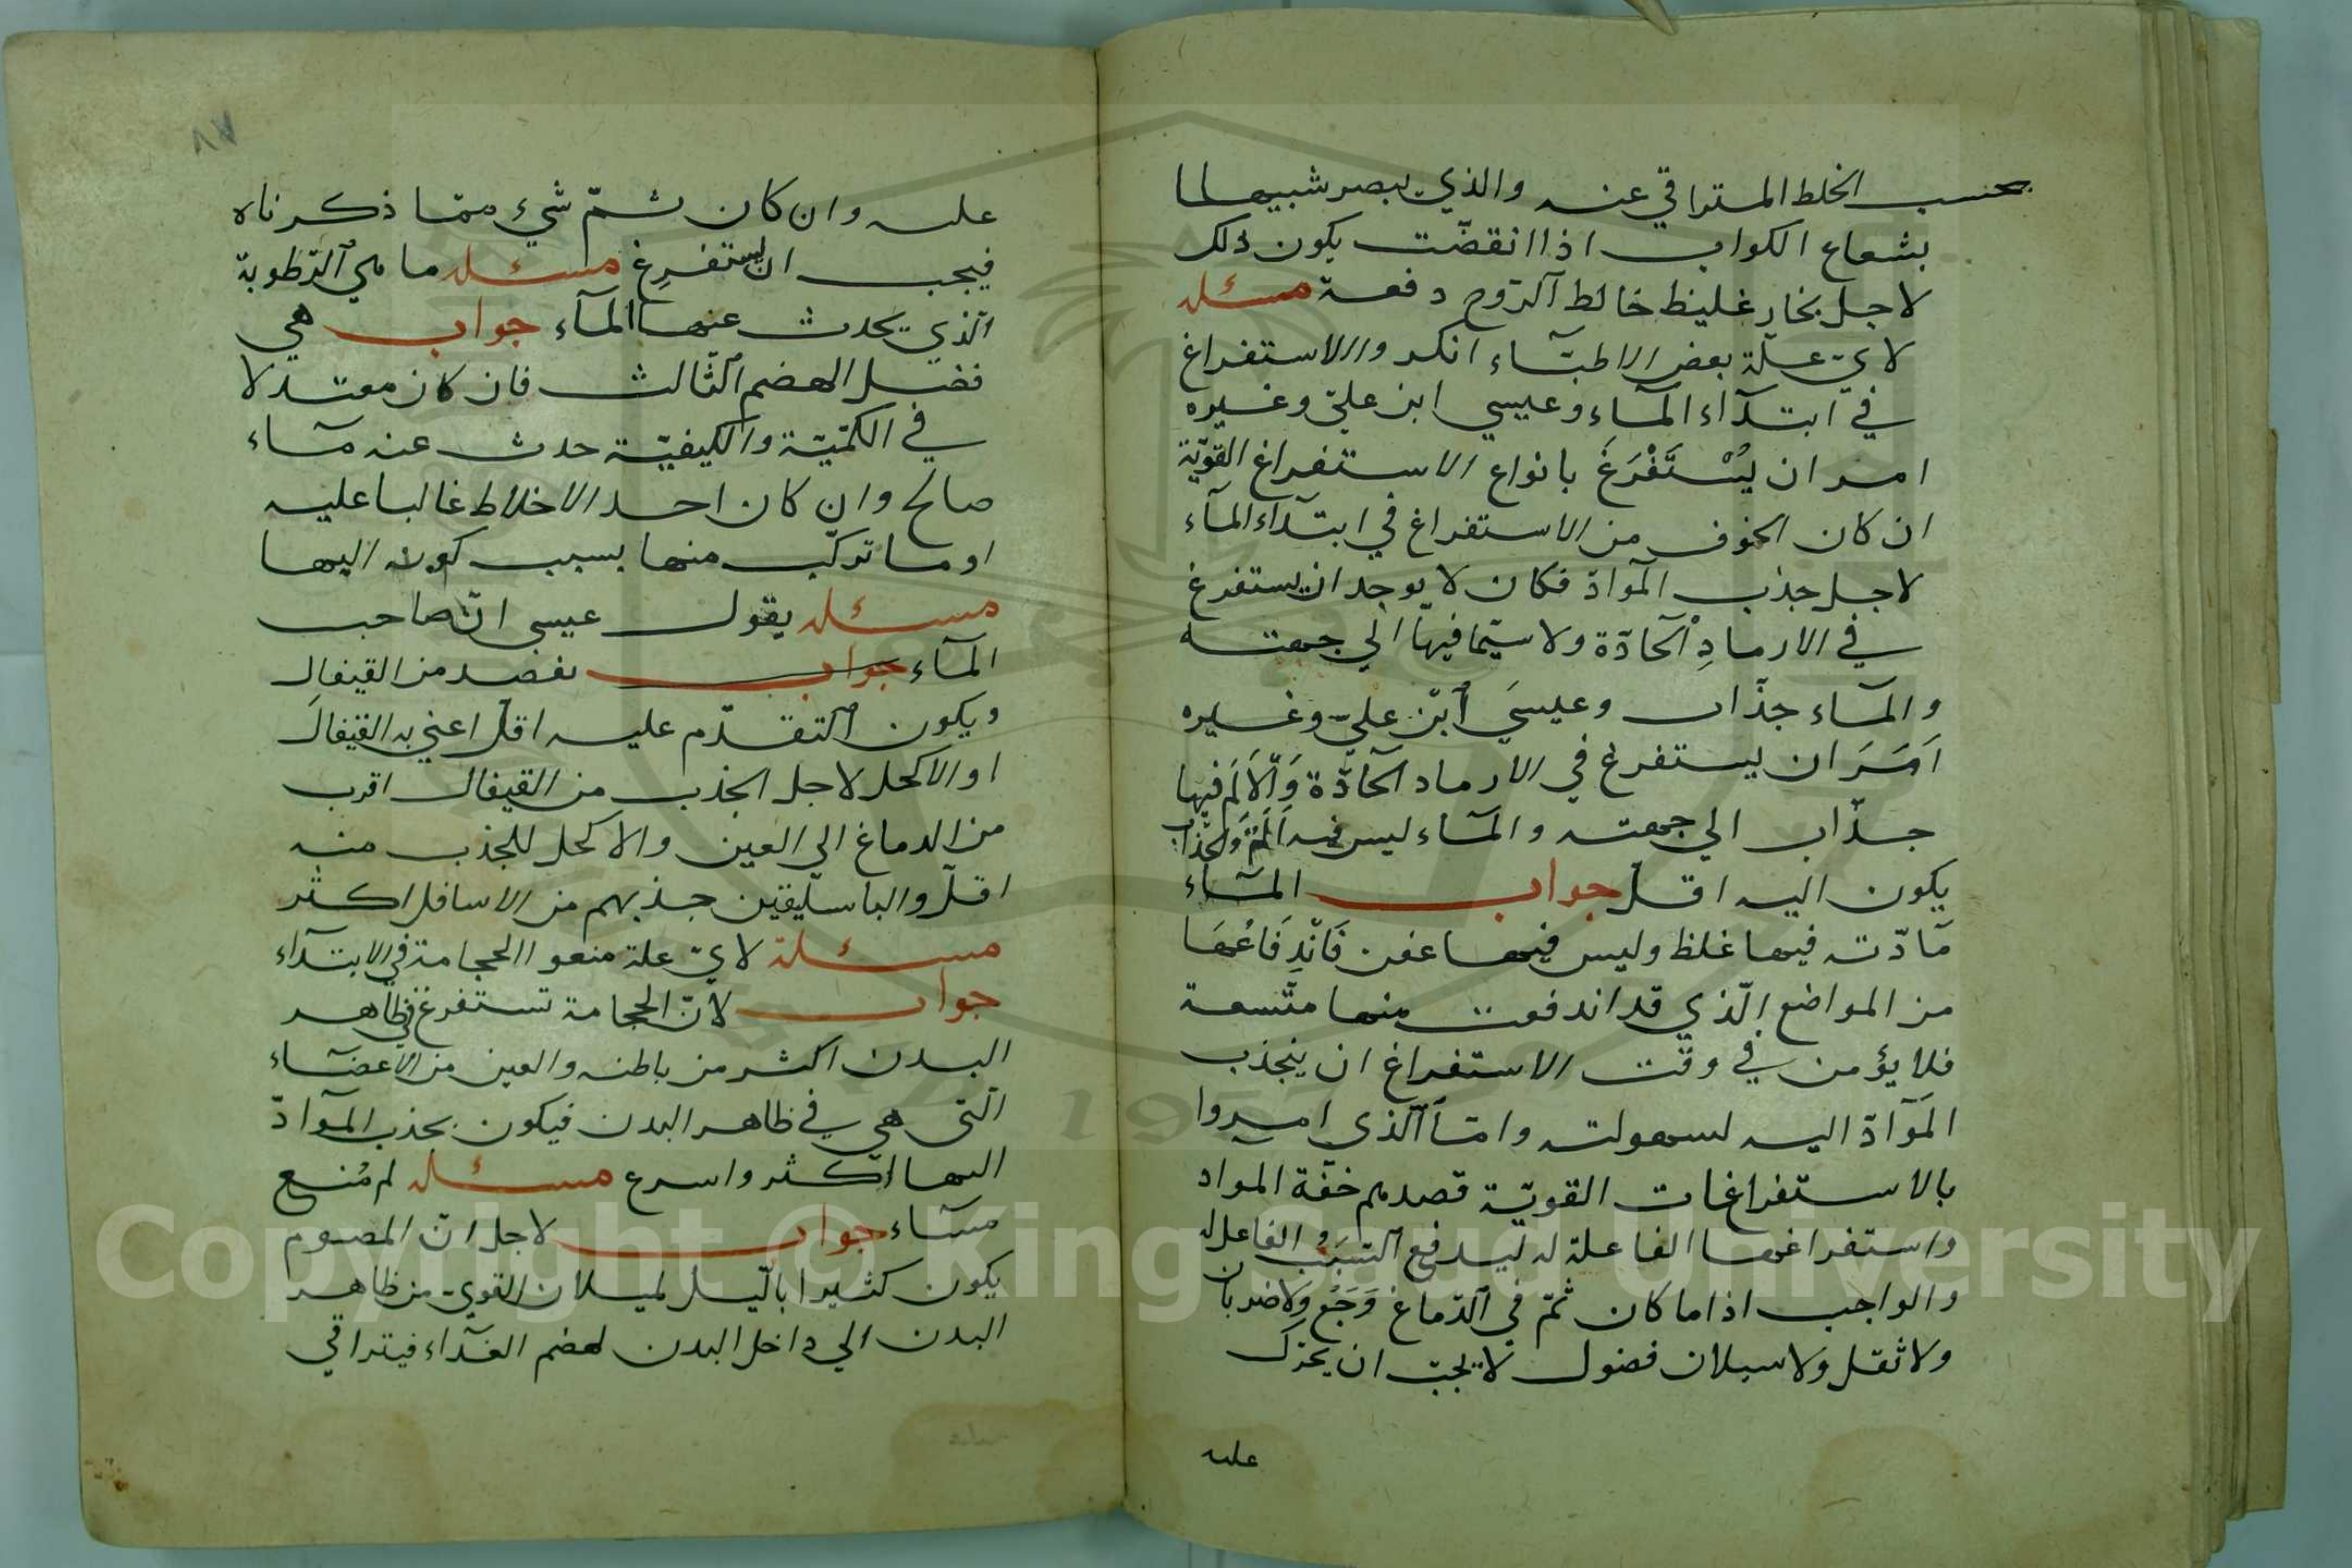 بحسب الخلط المتراقي عنه والذي يبصر شبيها لما
بشعاع الكواب اذا انقضّت يكون ذلك
لاجل بخار غليظ خالط الرّوح دفعة مسئله
لايّ علّة بعض الاطبّاء انكروا الاستفراغ
في ابتدآء المآء وعيسي ابن عليّ وغيره
امر ان يُسْتَفْرَغَ بانواع الاستفراغ القويّة
ان كان الخوف من الاستفراغ في ابتدآء المآء
لاجل جذب الموادّ فكان لا يوجد ان يستفرغ
في الارمادِ الحادّة ولا سيّما فيها الي جهته
والمآء جذّاب وعيسيَ ابن عليّ وغيره
اَمَرَ ان يستفرغ في الارماد الحادّة وَالاَلَم فيها
جذّاب الي جهته والمآء ليس فيه اَلَمٌ وَالجذاب
يكون اليه اقلّ جواب المآء
مآدّته فيها غلظ وليس فيها عفن فَانْدِفَاعُهَا
من المواضع الّذي قد اندفعت منها متّسعة
فلا يؤمن في وقت الاستفراغ ان ينجذب
الموآدّ اليه لسهولته وامّا الّذي امروا
بالاستفراغات القويّة قصدهم خفّة المواد
واستفراغها الفاعلة له ليدفع السّبَبُ الفاعل له
والواجب اذا ما كان ثمّ في الدّماغ وَجَعٌ ولا ضربان
ولا ثقل ولا سيلان فضول لا يجب ان يحرّك
عليه
٨٧
عليه وان كان ثمّ شيء ممّا ذكرناه
فيجب ان يستفرغ مسئله ما هي الرّطوبة
الّذي يحدث عنها المآء جواب هي
فضل الهضم الثّالث فان كان معتدلا
في الكمّيّة والكيفيّة حدث عنه مآء
صالح وان كان احد الاخلاط غالبا عليه
او ما تركّب منها بسبب كونه اليها
مسئله يقول عيسي انّ صاحب
المآء جواب يفصد من القيفال
ويكون التقدّم عليه اقلّ اعني به القيفال
او الاكحل لاجل الجذب من القيفال اقرب
من الدماغ الي العين والاكحل للجذب منه
اقلّ والباسليقين جذبهم من الاسافل اكثر
مسئلة لايّ علة منعوا الحجامة في الابتدآء
جواب لانّ الحجامة تستفرغ في ظاهر
البدن اكثر من باطنه والعين من الاعضآء
الّتي هي في ظاهر البدن فيكون بجذب الموآدّ
اليها اكثر واسرع مسئله لم مُنع
مسآء جواب لاجل انّ المصوم
يكون كثيرا باليّل لميلان القوي من ظاهر
البدن الي داخل البدن لهضم الغذآء فيتراقي